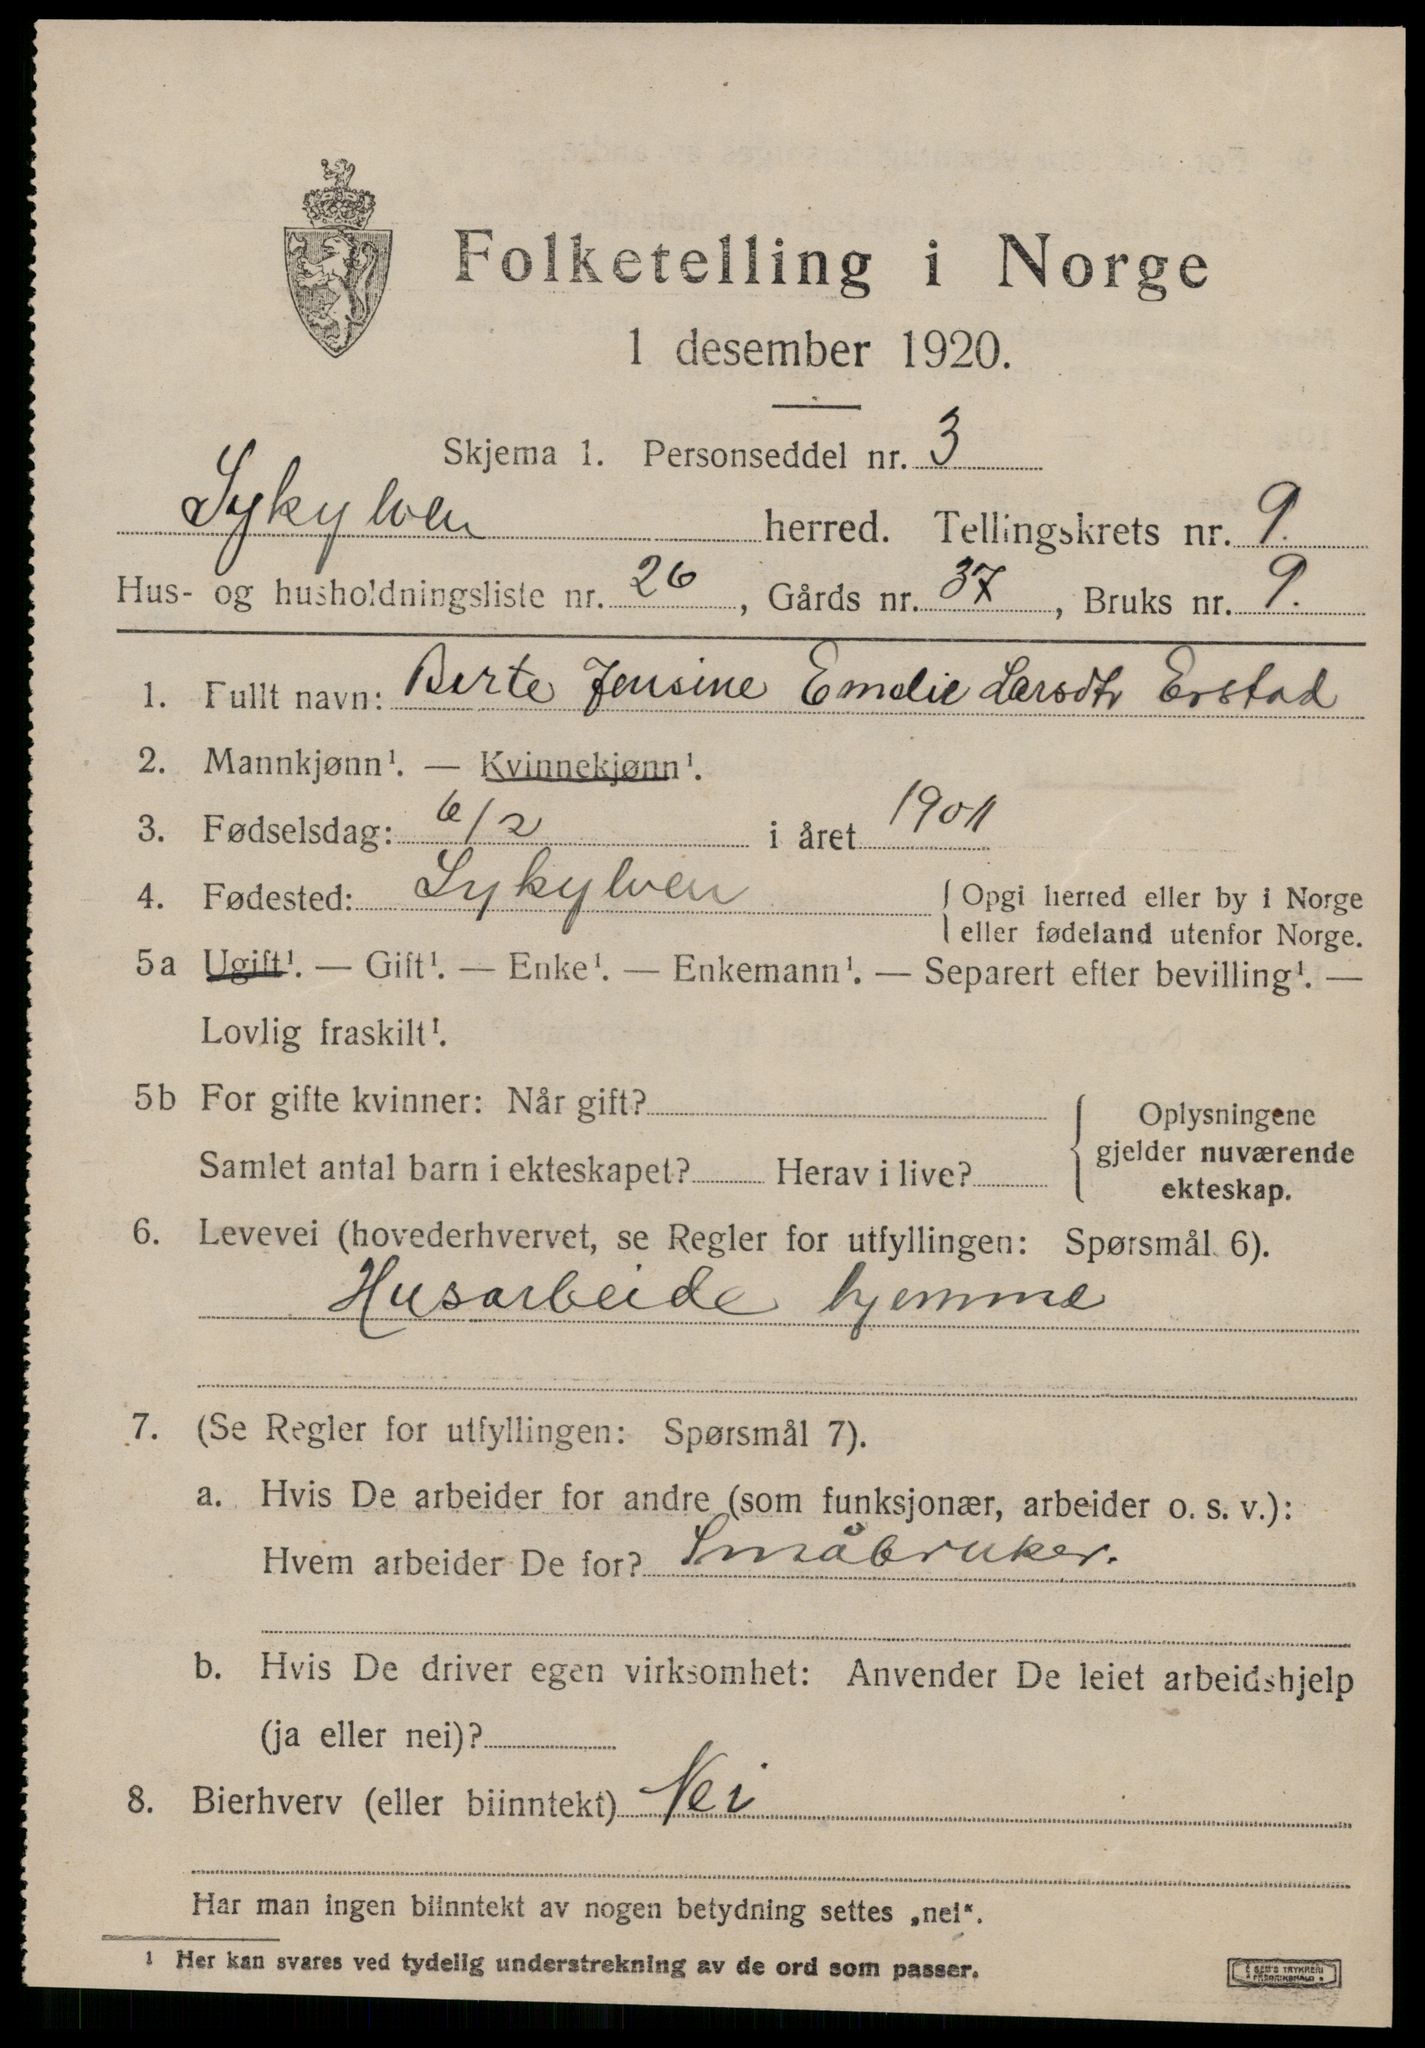 Folketelling i Norge
1 desember 1920.
Skjema 1. Personseddel nr. 3
Sykylven herred. Tellingskrets nr. 9.
Hus- og husholdningsliste nr. 26, Gårds nr. 37, Bruks nr. 9.
1. Fullt navn: Berte Jensine Emelie Larsdtr Erstad
2. Mannkjønn¹. — Kvinnekjønn¹.
3. Fødselsdag: 6/2 i året
4. Fødested: Sykylven { Opgi herred eller by i Norge
{ eller fødeland utenfor Norge.
5a Ugift¹. — Gift¹. — Enke¹. — Enkemann¹. — Separert efter bevilling¹. —
Lovlig fraskilt¹.
5b For gifte kvinner: Når gift? { Oplysningene
gjelder nuværende
Samlet antal barn i ekteskapet? Herav i live? ekteskap.
6. Levevei (hovederhvervet, se Regler for utfyllingen: Spørsmål 6).
Husarbeide hjemme
7. (Se Regler for utfyllingen: Spørsmål 7).
a. Hvis De arbeider for andre (som funksjonær, arbeider o. s. v.):
Hvem arbeider De for? Småbruker.
b. Hvis De driver egen virksomhet: Anvender De leiet arbeidshjelp
(ja eller nei)?
8. Bierhverv (eller biinntekt) Nei
Har man ingen biinntekt av nogen betydning settes „nei“.
¹ Her kan svares ved tydelig understrekning av de ord som passer.
SEM'S TRYKKERI
FREDRIKSHALD